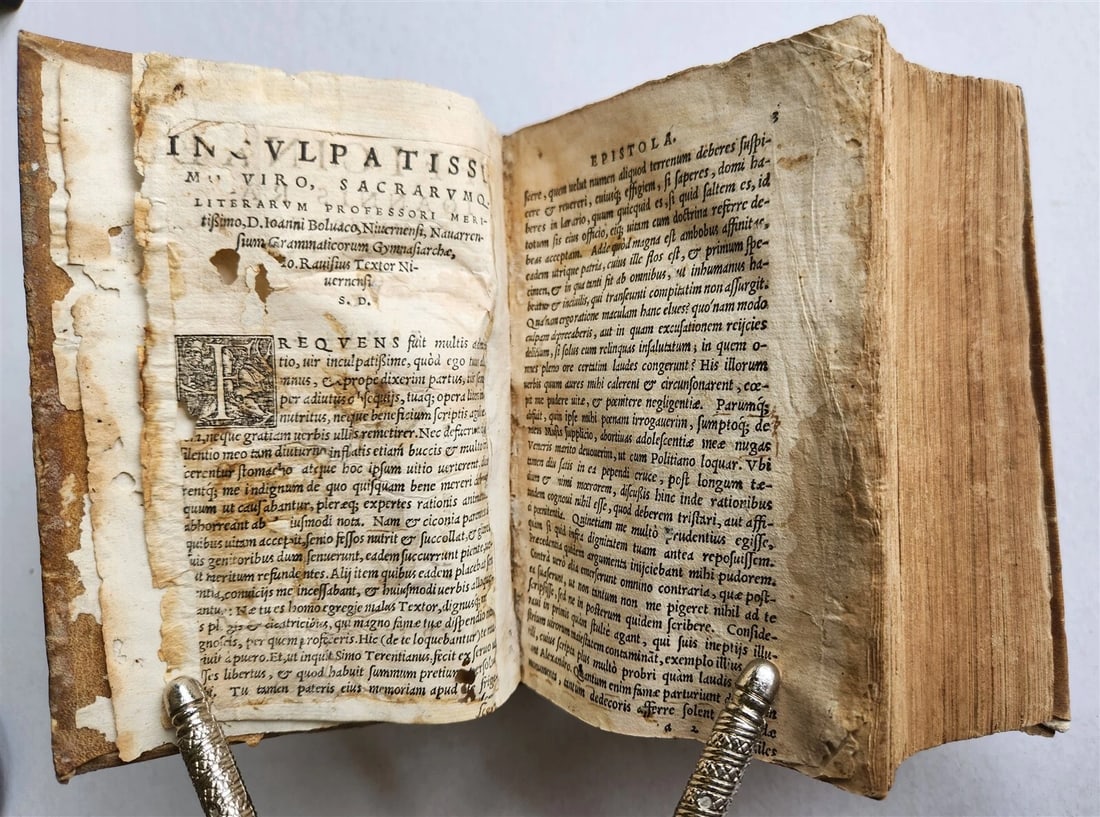 INCVLPATISSI
MO VIRO, SACRARVMQ.
LITERARVM PROFESSORI MERI-
tißimo, D. Ioanni Boluaco, Niuernensi, Nauarren-
sium Grammaticorum Gymnasiarchæ,
Io. Rauisius Textor Ni-
uernensis
S. D.
FREQVENS fuit multis admira
tio, uir inculpatißime, quòd ego tuus
mnus, & prope dixerim partus, tot sem
per adiutus obsequijs, tuaq; opera
nutritus, neque beneficium scriptis
neque gratiam uerbis ullis remetirer. Nec defuere
silentio meo tam diuturno inflatis etiam buccis & multo
cerentur stomacho atque hoc ipsum uitio uerterent,
rentq; me indignum de quo quisquam bene mereri
quum ut causabantur, pleræq; expertes rationis
abhorreant ab iusmodi nota. Nam & ciconia
quibus uitam accepit, senio fessos nutrit & succollat, &
genitoribus dum senuerunt, eadem succurrunt
meritum refundentes. Alij item quibus eadem
conuicijs me incessabant, & huiusmodi uerbis
: Næ tu es homo egregie malus Textor, dignusq;
& cicatricibus, qui magno famæ tuæ dispendio
gnoscis, per quem profeceris. Hic (de te loquebantur)
à puero. Et, ut inquit Simo Terentianus, fecit ex seruo
ses libertus, & quod habuit summum pretium
Tu tamen pateris eius memoriam apud frige
EPISTOLA. 3
scere, quem uelut numen aliquod terrenum deberes suspi-
cere & reuereri, cuiusq; effigiem, si saperes, domi ha-
beres in larario, quum quicquid es, si quid saltem es, id
totum sis eius officio, eiq; uitam cum doctrina referre de-
beas acceptam. Adde quòd magna est ambobus affinitas,
eadem utrique patria, cuius ille flos est, & primum spe-
cimen, & in qua tanti fit ab omnibus, ut inhumanus ha-
beatur & inciuilis, qui transeunti compitatim non assurgit.
Qua nam ergo ratione maculam hanc elues? quo nam modo
culpam deprecaberis, aut in quam excusationem reijcies
delictum, si solus eum relinquas insalutatum; in quem o-
mnes pleno ore certatim laudes congerunt? His illorum
uerbis quum aures mihi calerent & circunsonarent, cœ-
pit me pudere uitæ, & pœnitere negligentiæ. Parumq;
abfuit, quin ipse mihi pœnam irrogauerim, sumptoq; de
meis Musis supplicio, abortiuas adolescentiæ meæ nugas
Veneris marito deuouerim, ut cum Politiano loquar. Vbi
tamen diu satis in ea pependi cruce, post longum tæ-
dium & nimi mœrorem, discußis hinc inde rationibus
tandem cognoui nihil esse, quod deberem tristari, aut affi-
ci pœnitentia. Quinetiam me multò prudentius egisse,
quàm si quid infra dignitatem tuam antea reposuissem.
Præcedentia quidem argumenta inijciebant mihi pudorem.
Contrà uerò alia emerserunt omnino contraria, quæ post-
ea suaserunt, ut non tantum non me pigeret nihil ad te
scripsisse, sed ne in posterum quidem scribere. Conside-
raui in primis quàm stultè agant, qui suis ineptijs illu-
strium uirorum maiestatem contaminãt, exemplo illius
Alexandro. Quantum enim famæ parturiunt
uili, cuius scripta plus multò probri quàm laudis
monumenta, tantum dedecoris afferre solent
a 2